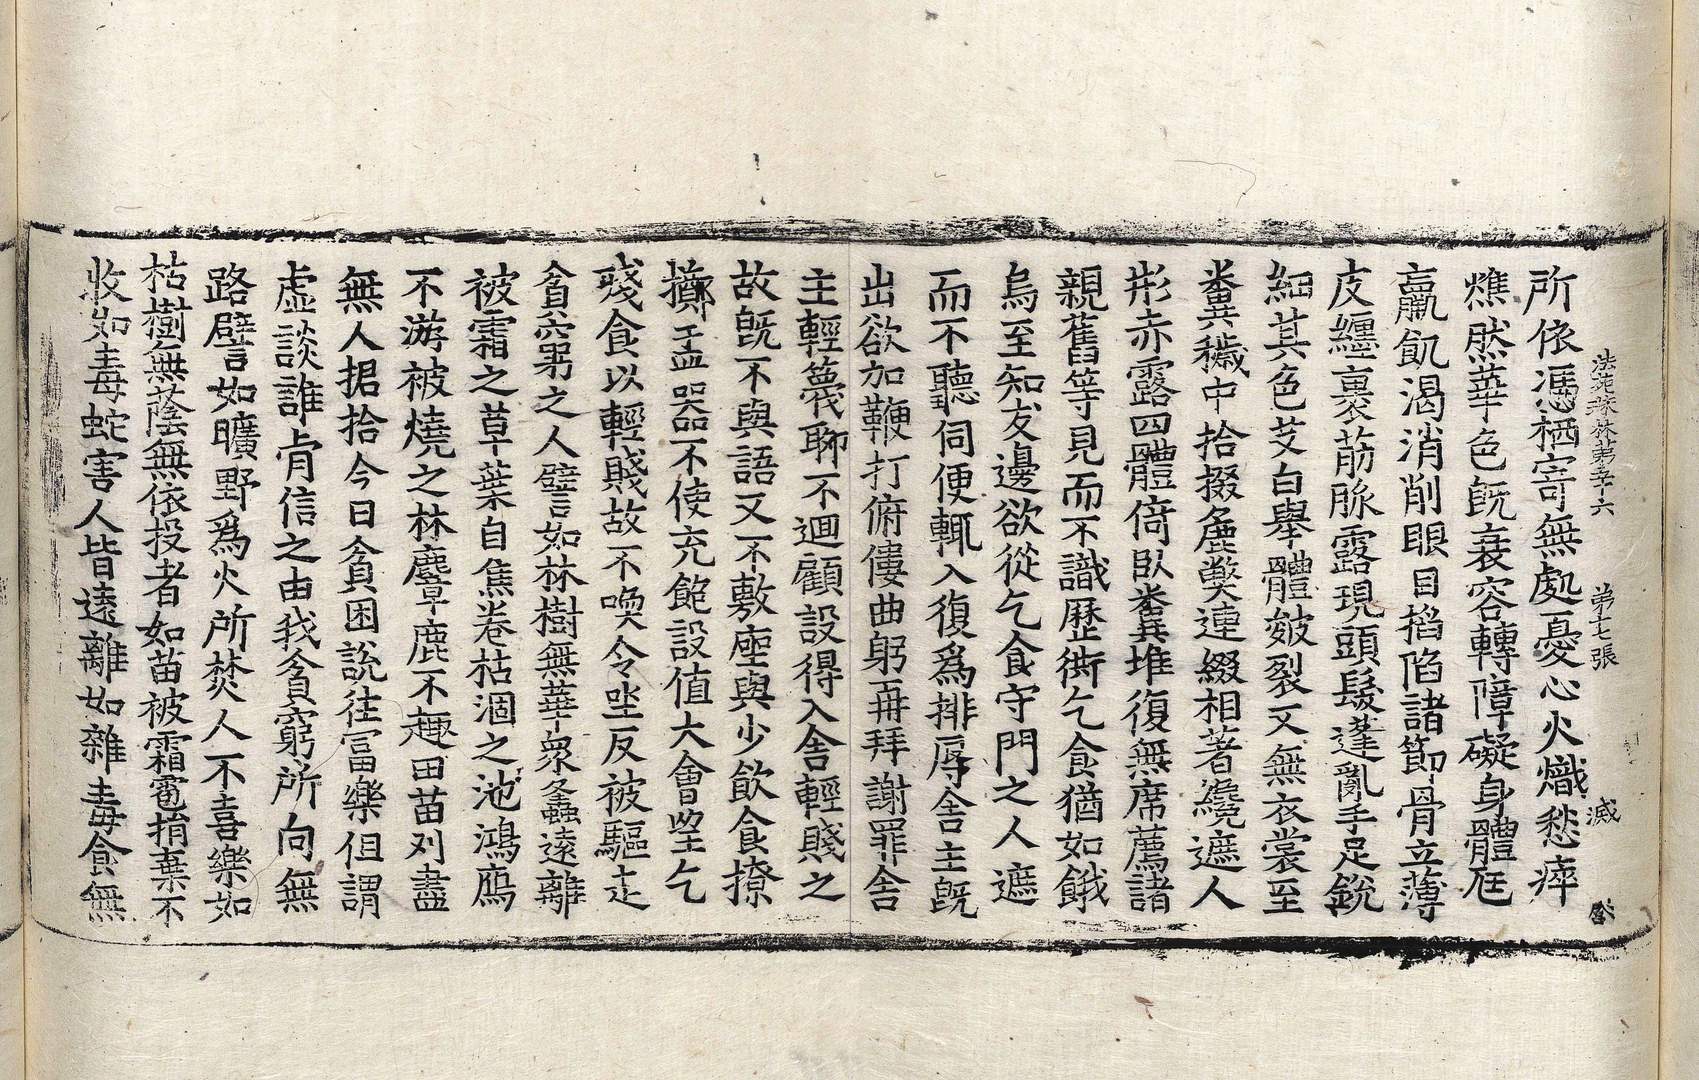 法苑珠林第五十六 第十七張 滅
所依憑栖寄無處憂心火熾愁瘁
燋然華色旣衰容轉障礙身體尫
羸飢渴消削眼目掐陷諸節骨立薄
皮纏裹筋脉露現頭髮蓬亂手足銳
細其色艾白舉體皴裂又無衣裳至
糞穢中拾掇麁弊連綴相著纔遮人
形赤露四體倚臥糞堆復無席薦諸
親舊等見而不識歷街乞食猶如餓
烏至知友邊欲從乞食守門之人遮
而不聽伺便輒入復爲排辱舍主旣
出欲加鞭打俯僂曲躬再拜謝罪舍
主輕蔑聊不迴顧設得入舍輕賤之
故旣不與語又不敷座與少飲食撩
擲盂器不使充飽設值大會望乞
殘食以輕賤故不喚令坐反被驅走
貧窮之人譬如林樹無華衆蟲遠離
被霜之草葉自焦卷枯涸之池鴻鴈
不游被燒之林麞鹿不趣田苗刈盡
無人捃拾今日貧困說往富樂但謂
虛談誰肯信之由我貧窮所向無
路譬如曠野爲火所焚人不喜樂如
枯樹無蔭無依投者如苗被霜雹捐棄不
收如毒蛇害人皆遠離如雜毒食無